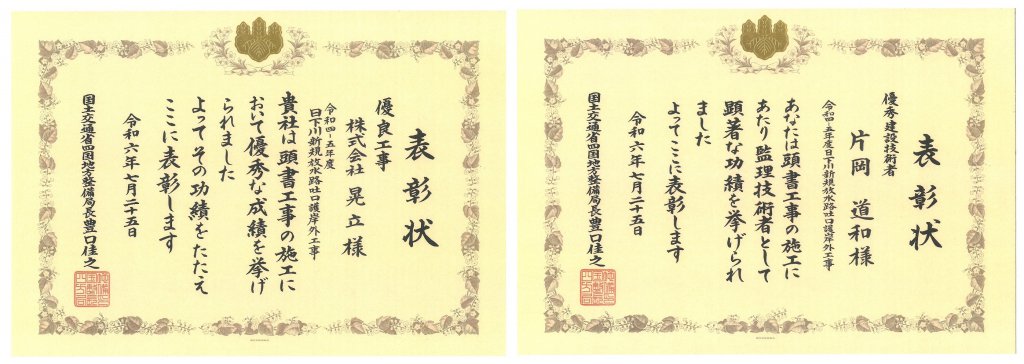 表彰状
優良工事
株式会社 晃立様
令和四-五年度
日下川新規放水路吐口護岸外工事
貴社は頭書工事の施工に
おいて優秀な成績を挙げ
られました
よってその功績をたたえ
ここに表彰します
令和六年七月二十五日
国土交通省四国地方整備局長豊口佳之
表彰状
優秀建設技術者
片岡 道和様
令和四-五年度日下川新規放水路吐口護岸外工事
あなたは頭書工事の施工に
あたり監理技術者として
顕著な功績を挙げられ
ました
よってここに表彰します
令和六年七月二十五日
国土交通省四国地方整備局長豊口佳之